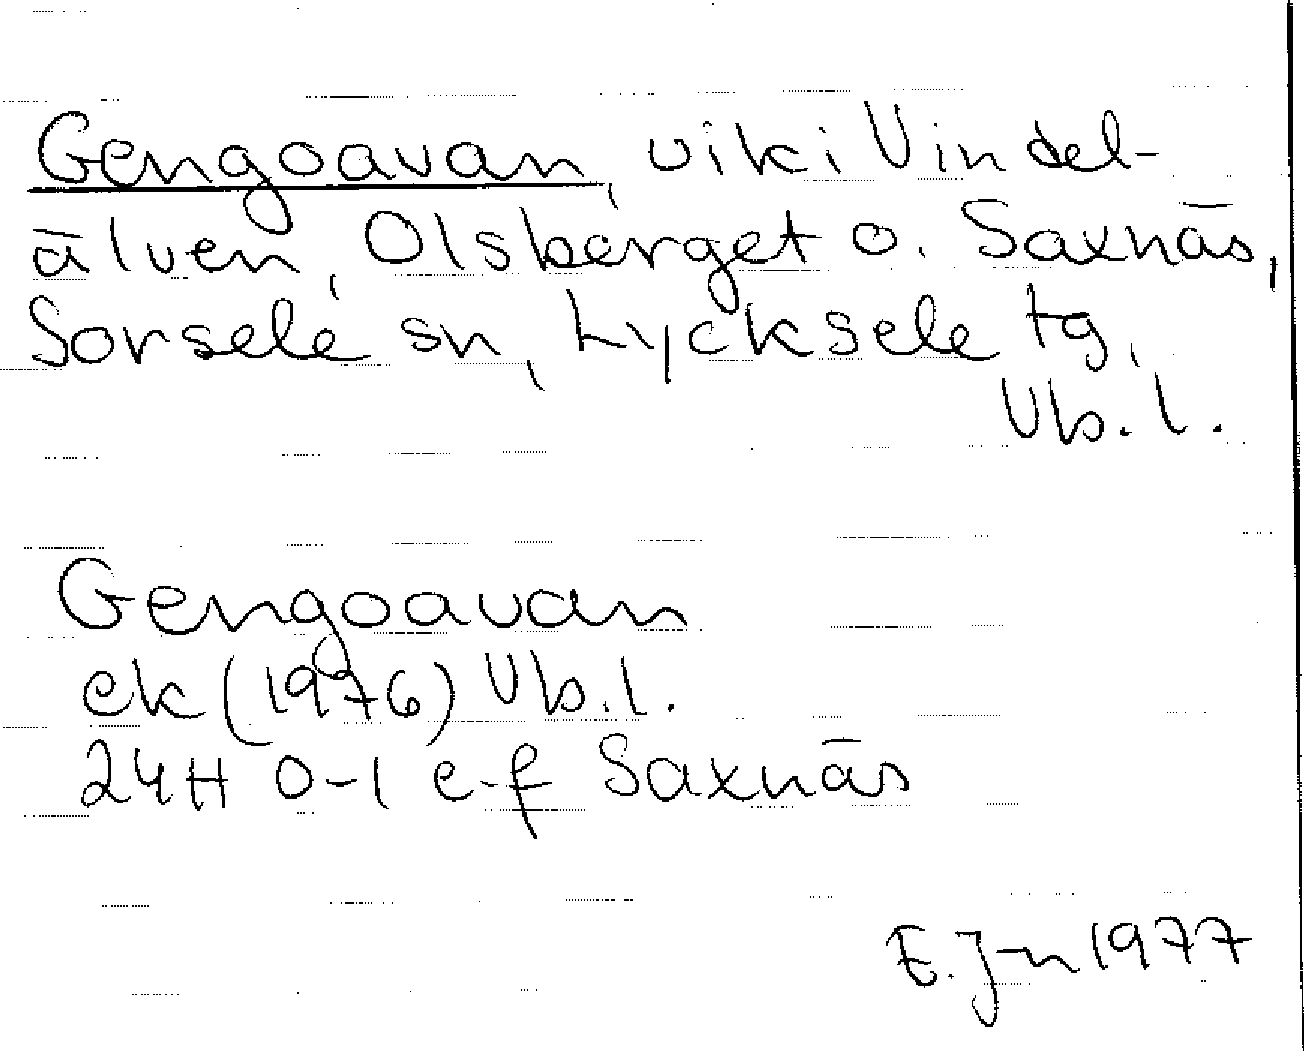 Gengoavan, vik i Vindel-
älven, Olsberget o. Saxnäs,
Sorsele sn, Lycksele tg,
Vb. l.
Gengoavan
ek (1976) Vb. l.
24H 0-1 e-f Saxnäs
E. J-n 1977